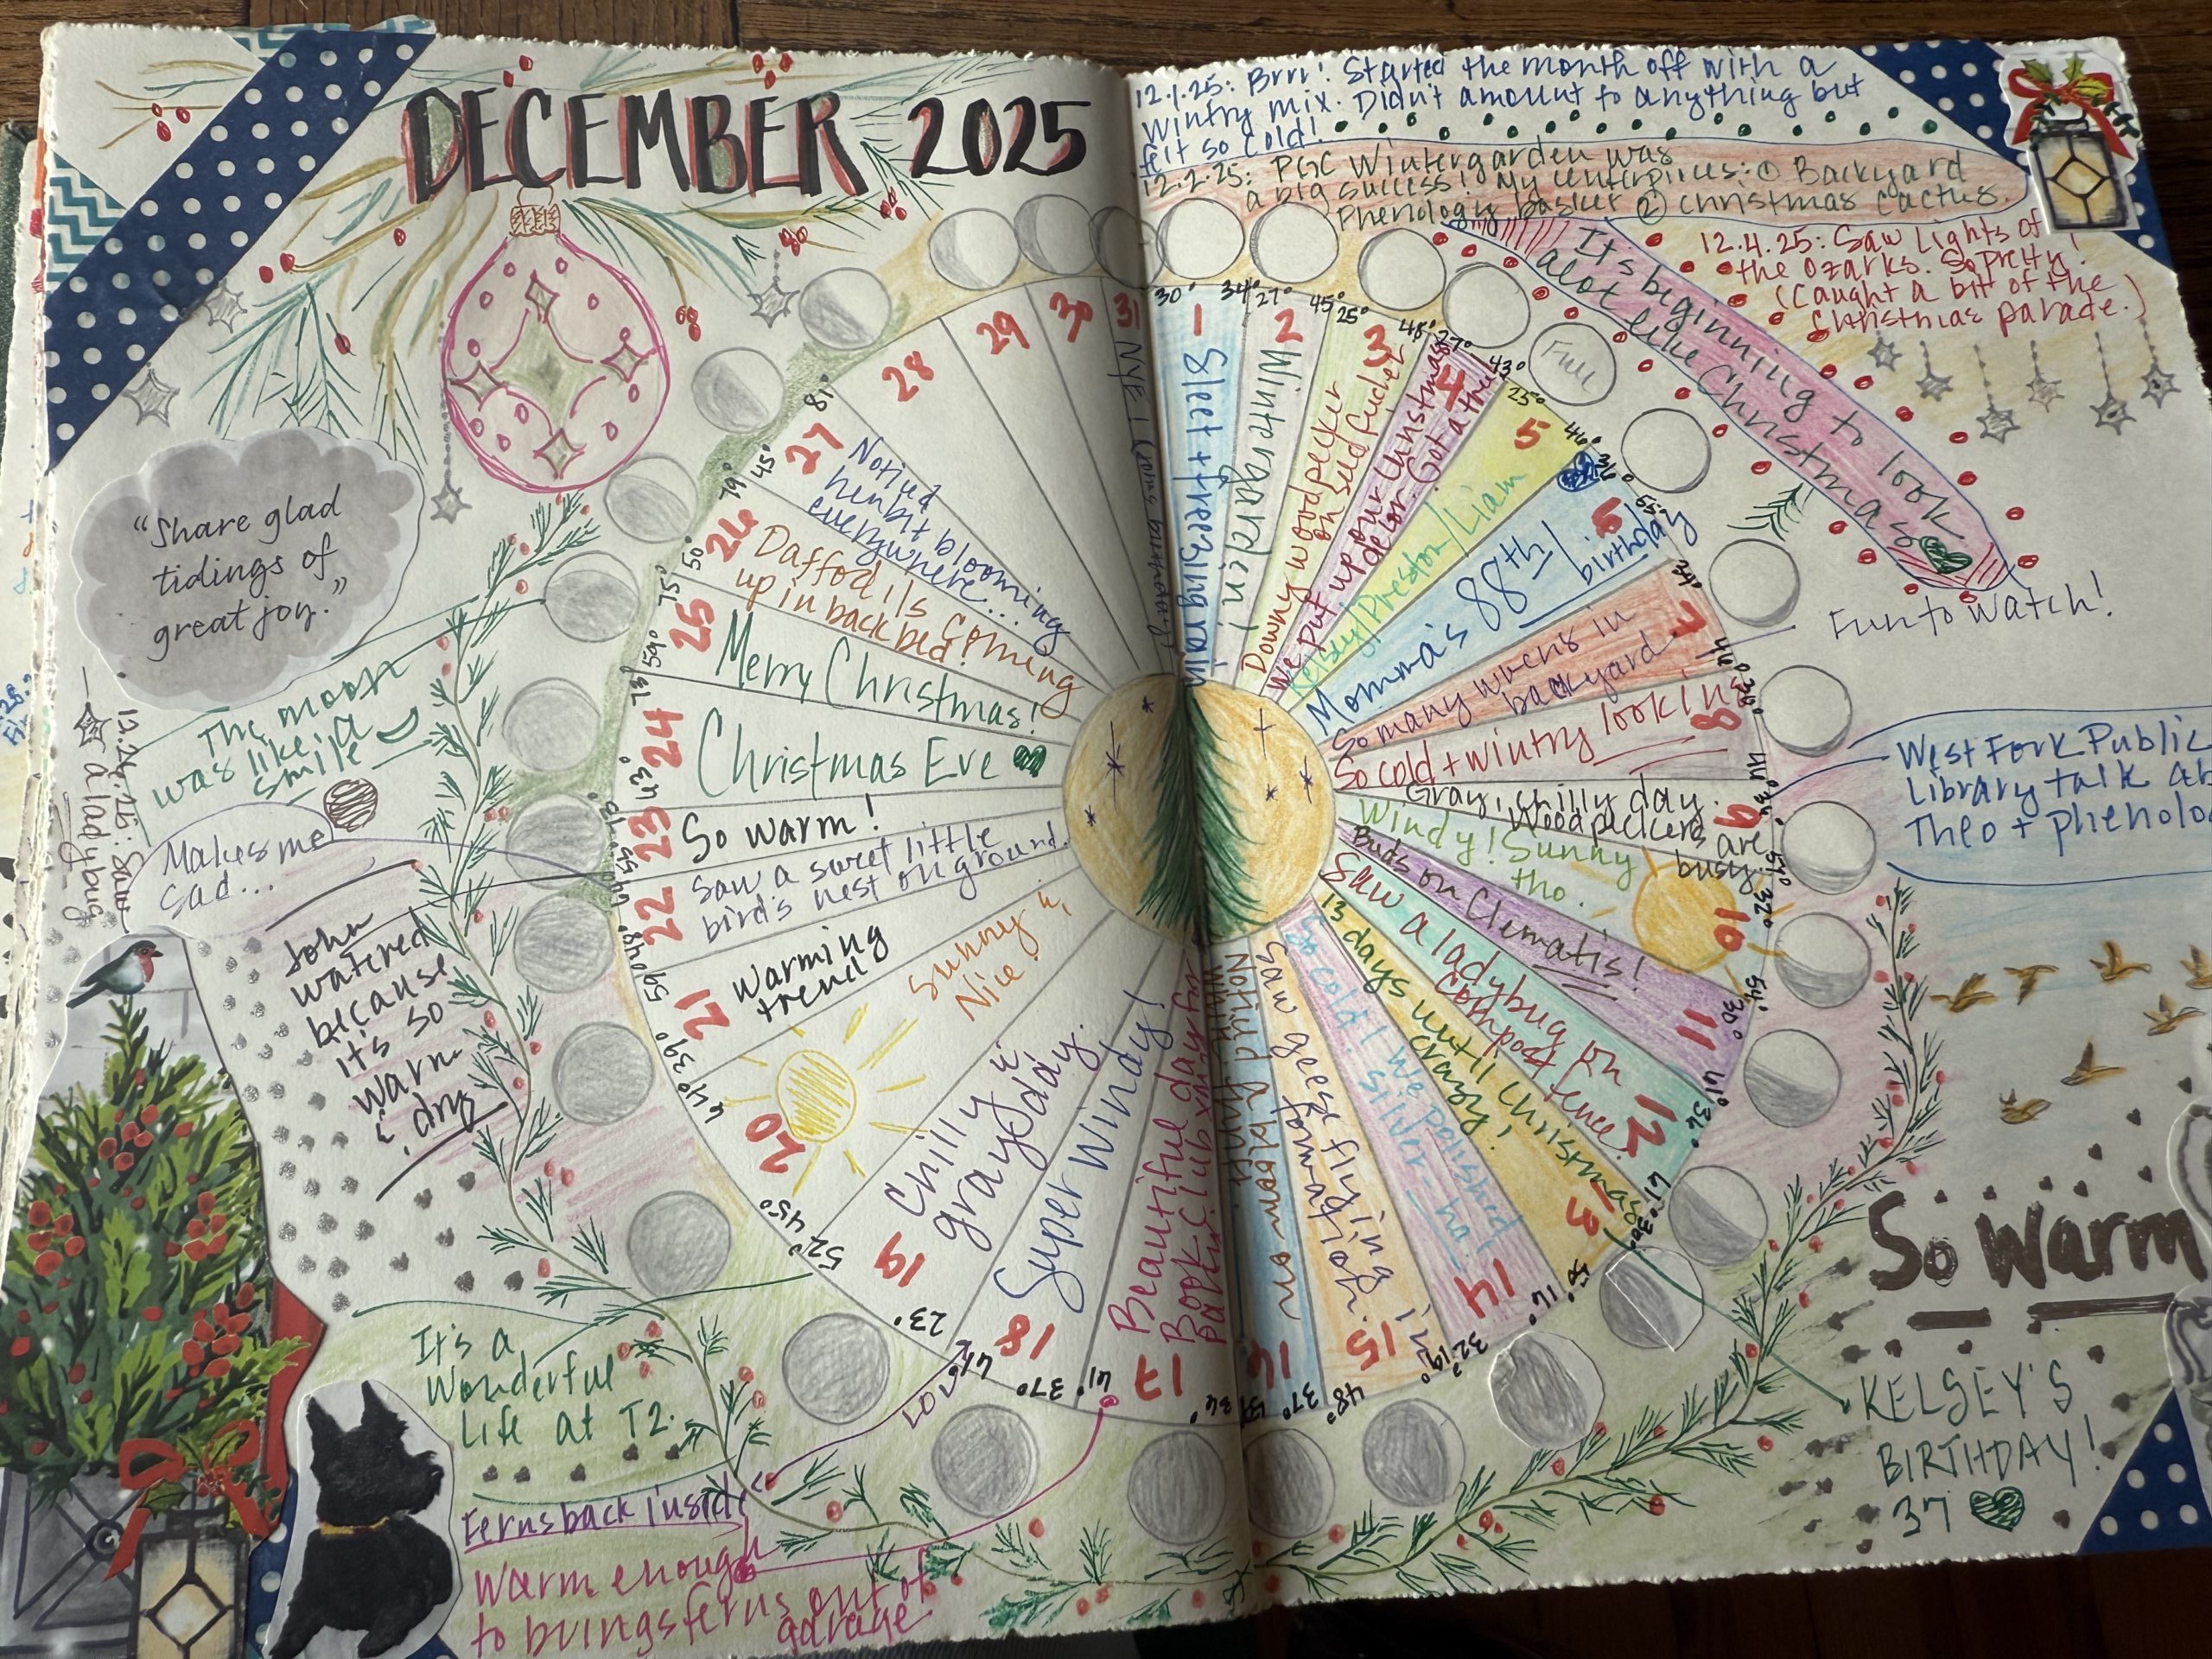 DECEMBER 2025
12.1.25: Brrr! Started the month off with a
wintry mix. Didn't amount to anything but
felt so cold!
12.2.25: PGC Wintergarden was
a big success! My centerpieces: ① Backyard
Phenology basket ② Christmas Cactus.
12.4.25: Saw Lights of
the Ozarks. So pretty!
(Caught a bit of the
Christmas parade.)
It's beginning to look
alot like Christmas
Full
Fun to watch!
West Fork Public
Library talk
Theo +
So Warm
KELSEY'S
BIRTHDAY!
37
1
Sleet + freezing rain
30° 34°
2
Wintergarden!
27° 45°
3
Downy woodpecker
on seed
25° 48°
4
We put up our Christmas
decor. Got a tree
27° 43°
5
Kelsey/Preston/Liam
25° 46°
6
Momma's 88th
birthday
7
So many wrens in
backyard
8
So cold + wintry looking
9
Gray, chilly day.
Woodpeckers are
busy.
10
Windy! Sunny
tho.
11
Buds on Clematis!
12
Saw a ladybug on
compost fence
13
13 days until Christmas
crazy!
14
So cold! We polished
silver - ha!
15
Saw geese flying in
formation.
Noticed a bloom on
17
Beautiful day for
Book Club xmas
18
Super Windy!
37° 61°
19
Chilly &
gray day.
23°
20
Sunny &
Nice!
45° 52°
21
Warming
trend
39° 64°
22
Saw a sweet little
bird's nest on ground.
23
So warm!
24
Christmas Eve
25
Merry Christmas!
59° 75°
26
Daffodils coming
up in back bed!
50° 79°
27
Noticed
henbit blooming
everywhere...
45° 81°
28
29
30
31
NYE!
"Share glad
tidings of
great joy."
The moon
was like a
smile
12.26.25: Saw
a ladybug
Makes me
sad...
John
watered
because
it's so
warm
& dry
It's a
Wonderful
Life at T2.
LOVE
Ferns back inside
Warm enough
to bring ferns out of
garage